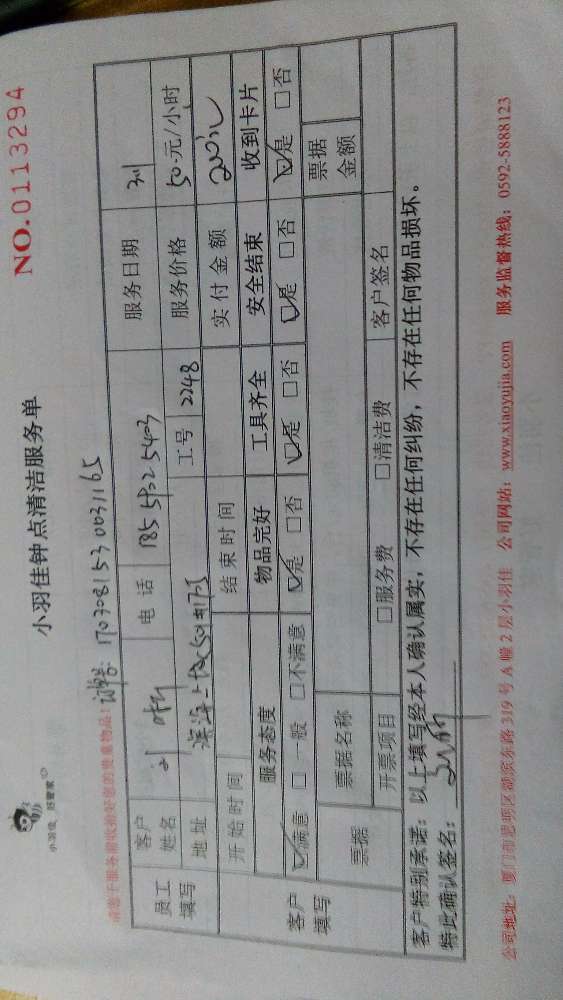 小羽佳 好管家
小羽佳钟点清洁服务单
NO.0113294
请您于服务前收拾好您的贵重物品!
订单号: 170308153003 1165
员工填写 客户姓名 刘 电话 185 5932 5403 服务日期
地址 滨海 工号 2248 服务价格 50元/小时
开始时间 结束时间 实付金额
客户填写 服务态度 物品完好 工具齐全 安全结束 收到卡片
☑满意 □一般 □不满意 ☑是 □否 ☑是 □否 ☑是 □否 ☑是 □否
票据 票据名称 票据金额
开票项目 □服务费 □清洁费 客户签名
客户特别承诺:以上填写经本人确认属实,不存在任何纠纷,不存在任何物品损坏.
特此确认签名:
公司地址:厦门市思明区湖滨东路 319 号 A 幢 2 层小羽佳 公司网站:www.xiaoyujia.com 服务监督热线:0592-5888123